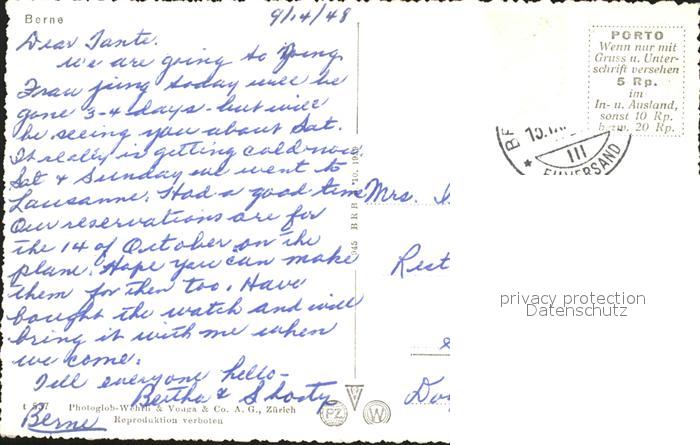 Berne
9/14/48
Dear Tante.
We are going to Young
Frau jung today will be
gone 3-4 days - but will
be seeing you about Sat.
It really is getting cold now
Sat & Sunday we went to
Lausanne. Had a good time
Our reservations are for
the 14 of October on the
plane. Hope you can make
them for then too. Have
bought the watch and will
bring it with me when
we come.
Tell everyone hello-
Bertha & Shorty
Berne
Photoglob-Wehrli & Vouga & Co. A. G., Zürich
Reproduktion verboten
PZ W
Mrs.
Rest
PORTO
Wenn nur mit
Gruss u. Unter-
schrift versehen
5 Rp.
im
In- u. Ausland,
sonst 10 Rp.
bezw. 20 Rp.
III
privacy protection
Datenschutz